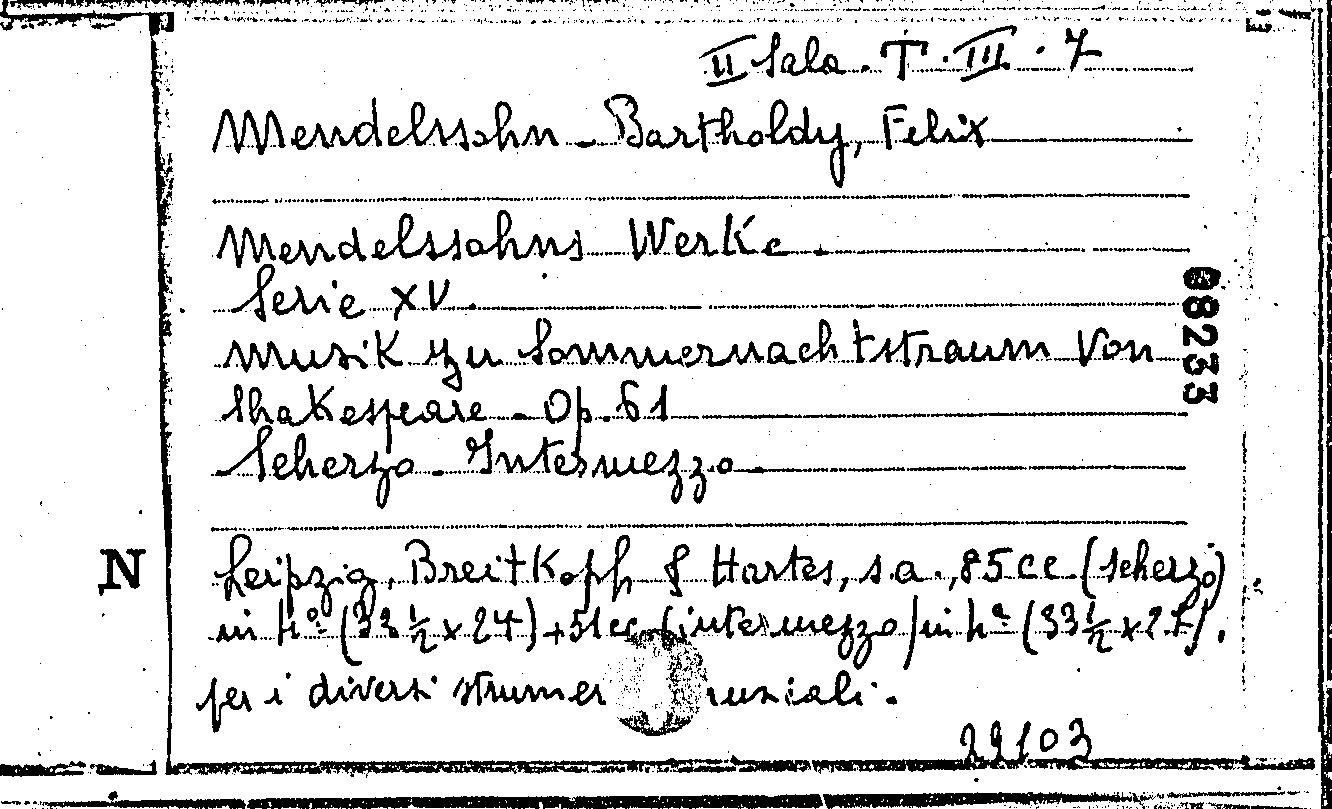 II Sala. T. III. 7
Mendelssohn - Bartholdy, Felix
Mendelssohns Werke.
Serie XV.
Musik zu Sommernachtstraum von
Shakespeare - Op. 61
Scherzo - Intermezzo
08233
N
Leipzig, Breitkoph & Hartes, s.a., 85 cc. (scherzo)
in 4° (33 1/2 x 24) + 51 cc. (intermezzo) in 4° (33 1/2 x 27).
per i diversi strumen
29103